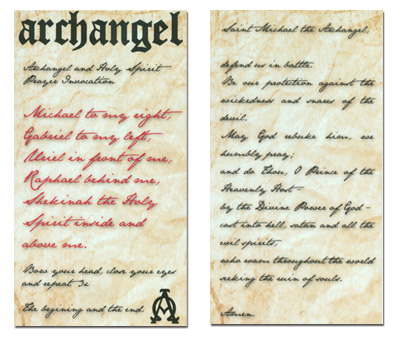 archangel
Archangel and Holy Spirit
Prayer Invocation
Michael to my right,
Gabriel to my left,
Uriel in front of me,
Raphael behind me,
Shekinah the Holy
Spirit inside and
above me.
Bow your head, close your eyes
and repeat 3x
The begining and the end.
Saint Michael the Archangel,
defend us in battle.
Be our protection against the
wickedness and snares of the
devil.
May God rebuke him, we
humbly pray;
and do Thou, O Prince of the
Heavenly Host-
by the Divine Power of God-
cast into hell, satan and all the
evil spirits,
who roam throughout the world
seeking the ruin of souls.
Amen.